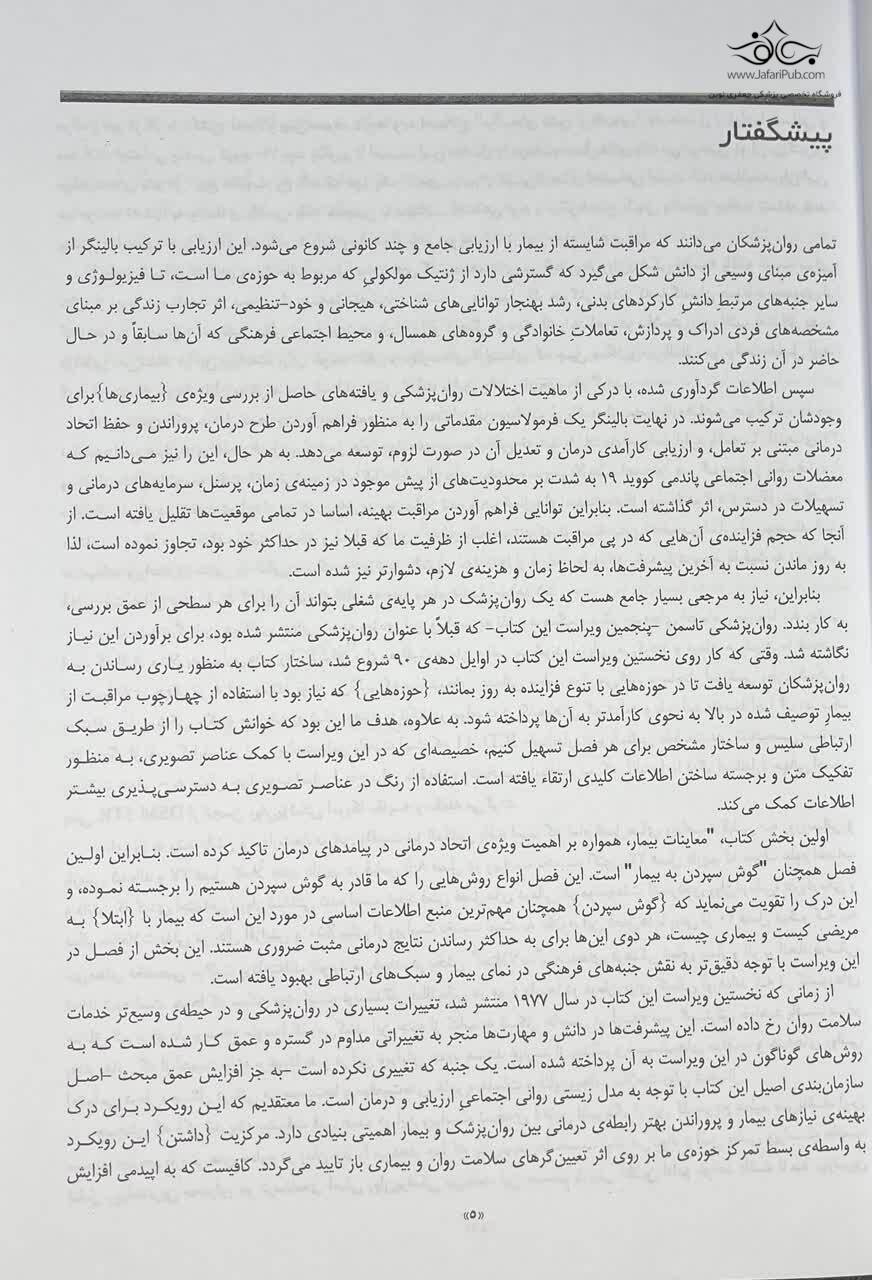 جعفری
www.JafariPub.com
فروشگاه تخصصی پزشکی جعفری نوین
پیشگفتار
تمامی روان‌پزشکان می‌دانند که مراقبت شایسته از بیمار با ارزیابی جامع و چند کانونی شروع می‌شود. این ارزیابی با ترکیب بالینگر از
آمیزه‌ی مبنای وسیعی از دانش شکل می‌گیرد که گسترشی دارد از ژنتیک مولکولیِ که مربوط به حوزه‌ی ما است، تا فیزیولوژی و
سایر جنبه‌های مرتبطِ دانشِ کارکردهای بدنی، رشد بهنجار توانایی‌های شناختی، هیجانی و خود-تنظیمی، اثر تجارب زندگی بر مبنای
مشخصه‌های فردی ادراک و پردازش، تعاملاتِ خانوادگی و گروه‌های همسال، و محیط اجتماعی فرهنگی که آن‌ها سابقاً و در حال
حاضر در آن زندگی می‌کنند.
سپس اطلاعات گردآوری شده، با درکی از ماهیت اختلالات روان‌پزشکی و یافته‌های حاصل از بررسی ویژه‌ی {بیماری‌ها}برای
وجودشان ترکیب می‌شوند. در نهایت بالینگر یک فرمولاسیون مقدماتی را به منظور فراهم آوردن طرح درمان، پروراندن و حفظ اتحاد
درمانی مبتنی بر تعامل، و ارزیابی کارآمدی درمان و تعدیل آن در صورت لزوم، توسعه می‌دهد. به هر حال، این را نیز می‌دانیم که
معضلات روانی اجتماعی پاندمی کووید ۱۹ به شدت بر محدودیت‌های از پیش موجود در زمینه‌ی زمان، پرسنل، سرمایه‌های درمانی و
تسهیلات در دسترس، اثر گذاشته است. بنابراین توانایی فراهم آوردن مراقبت بهینه، اساسا در تمامی موقعیت‌ها تقلیل یافته است. از
آنجا که حجم فزاینده‌ی آن‌هایی که در پی مراقبت هستند، اغلب از ظرفیت ما که قبلا نیز در حداکثر خود بود، تجاوز نموده است، لذا
به روز ماندن نسبت به آخرین پیشرفت‌ها، به لحاظ زمان و هزینه‌ی لازم، دشوارتر نیز شده است.
بنابراین، نیاز به مرجعی بسیار جامع هست که یک روان‌پزشک در هر پایه‌ی شغلی بتواند آن را برای هر سطحی از عمق بررسی،
به کار بندد. روان‌پزشکی تاسمن -پنجمین ویراست این کتاب- که قبلاً با عنوان روان‌پزشکی منتشر شده بود، برای برآوردن این نیاز
نگاشته شد. وقتی که کار روی نخستین ویراست این کتاب در اوایل دهه‌ی ۹۰ شروع شد، ساختار کتاب به منظور یاری رساندن به
روان‌پزشکان توسعه یافت تا در حوزه‌هایی با تنوع فزاینده به روز بمانند، {حوزه‌هایی} که نیاز بود با استفاده از چهارچوب مراقبت از
بیمارِ توصیف شده در بالا به نحوی کارآمدتر به آن‌ها پرداخته شود. به علاوه، هدف ما این بود که خوانش کتاب را از طریق سبک
ارتباطی سلیس و ساختار مشخص برای هر فصل تسهیل کنیم، خصیصه‌ای که در این ویراست با کمک عناصر تصویری، به منظور
تفکیک متن و برجسته ساختن اطلاعات کلیدی ارتقاء یافته است. استفاده از رنگ در عناصر تصویری به دسترسی‌پذیری بیشتر
اطلاعات کمک می‌کند.
اولین بخش کتاب، "معاینات بیمار، همواره بر اهمیت ویژه‌ی اتحاد درمانی در پیامدهای درمان تاکید کرده است. بنابراین اولین
فصل همچنان "گوش سپردن به بیمار" است. این فصل انواع روش‌هایی را که ما قادر به گوش سپردن هستیم را برجسته نموده، و
این درک را تقویت می‌نماید که {گوش سپردن} همچنان مهم‌ترین منبع اطلاعات اساسی در مورد این است که بیمار با {ابتلا} به
مریضی کیست و بیماری چیست، هر دوی این‌ها برای به حداکثر رساندن نتایج درمانی مثبت ضروری هستند. این بخش از فصل در
این ویراست با توجه دقیق‌تر به نقش جنبه‌های فرهنگی در نمای بیمار و سبک‌های ارتباطی بهبود یافته است.
از زمانی که نخستین ویراست این کتاب در سال ۱۹۷۷ منتشر شد، تغییرات بسیاری در روان‌پزشکی و در حیطه‌ی وسیع‌تر خدمات
سلامت روان رخ داده است. این پیشرفت‌ها در دانش و مهارت‌ها منجر به تغییراتی مداوم در گستره و عمق کار شده است که به
روش‌های گوناگون در این ویراست به آن پرداخته شده است. یک جنبه که تغییری نکرده است -به جز افزایش عمق مبحث -اصل
سازمان‌بندی اصیل این کتاب با توجه به مدل زیستی روانی اجتماعیِ ارزیابی و درمان است. ما معتقدیم که این رویکرد برای درک
بهینه‌ی نیازهای بیمار و پروراندن بهتر رابطه‌ی درمانی بین روان‌پزشک و بیمار اهمیتی بنیادی دارد. مرکزیت {داشتن} این رویکرد
به واسطه‌ی بسط تمرکز حوزه‌ی ما بر روی اثر تعیین‌گرهای سلامت روان و بیماری باز تایید می‌گردد. کافیست که به اپیدمی افزایش
«۵»